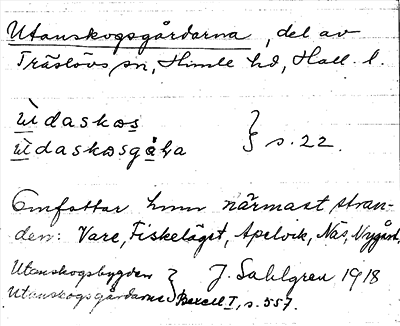 Utanskogsgårdarna, del av
Träslövs sn, Himle hd, Hall. l.
ùdaskɷs } s. 22.
ùdaskɷsgɑ̊ɽa
Omfattar hmn närmast stran-
den: Vare, Fiskeläget, Apelvik, Näs, Nygård,
Utanskogsbygden J. Sahlgren 1918
Utanskogsgårdarne } Bexell I, s. 557.